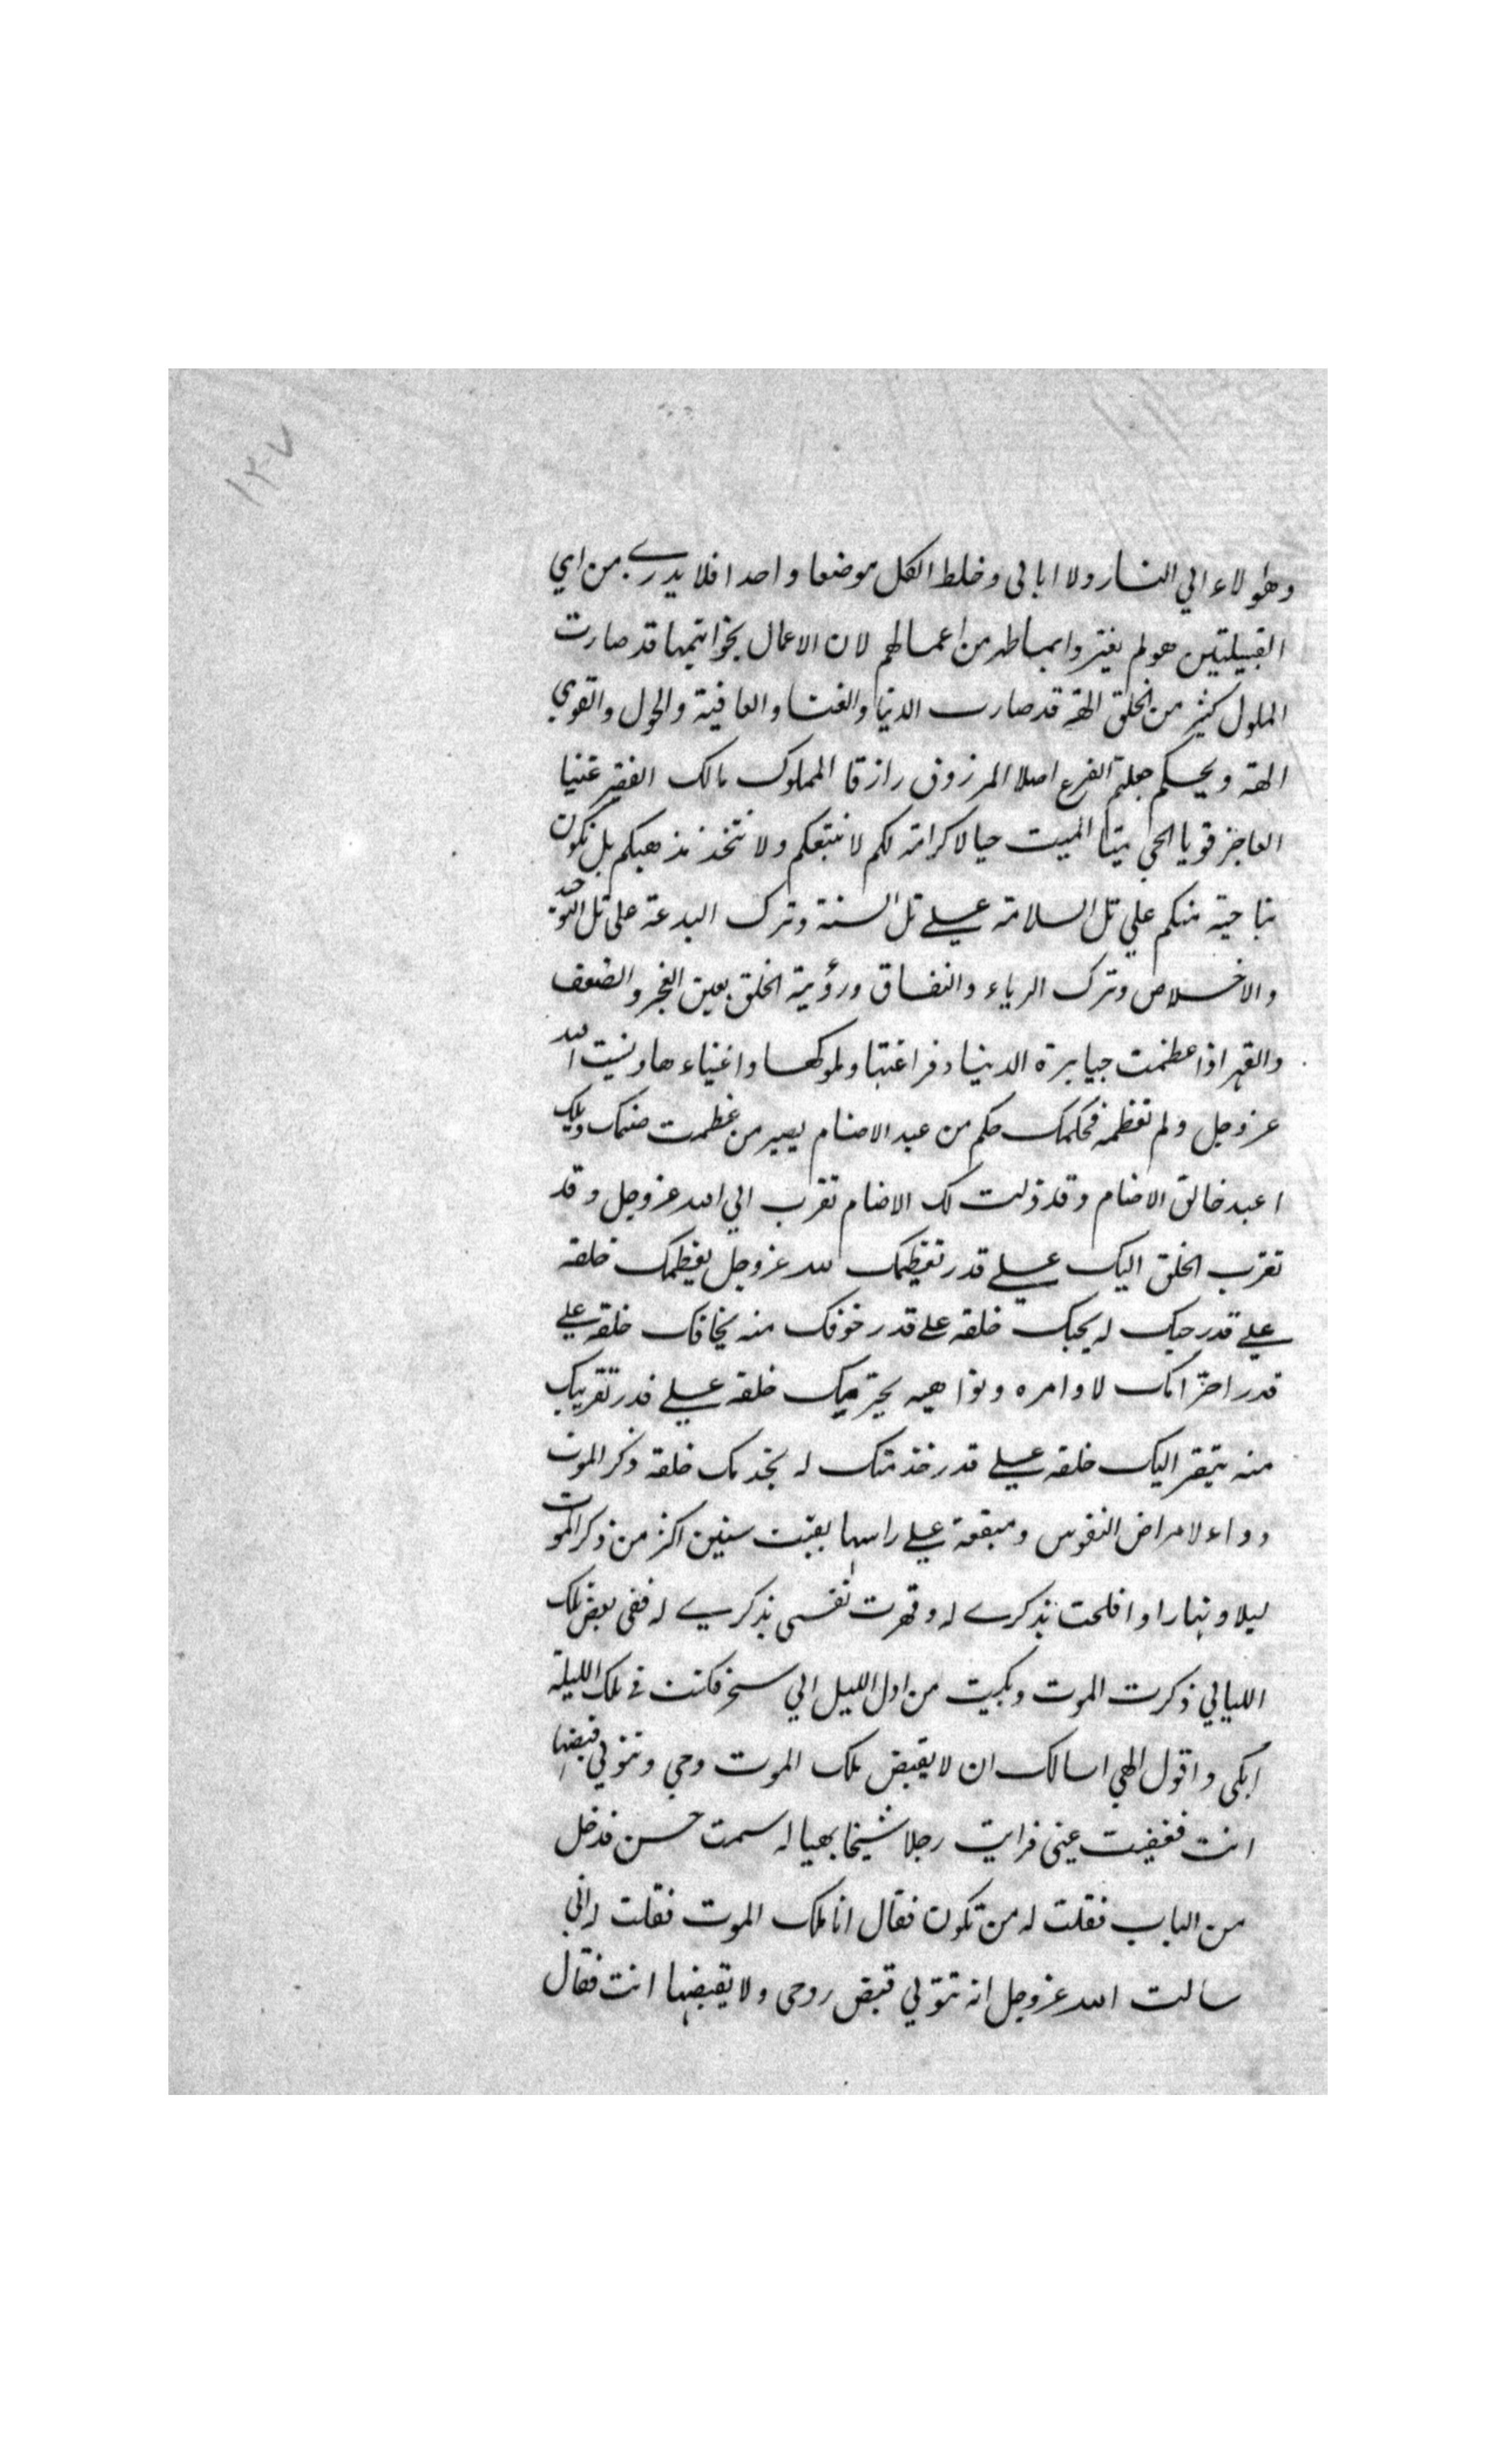 ١٣٧
وهؤلاء الي النار ولا ابالي وخلط الكل موضعا واحدا فلا يدرے من اي
القبيلتين هو لم يغتروا بما ظهر من اعمالهم لان الاعمال بخواتيمها قد صارت
الملوك كثير من الخلق الهة قد صارت الدنيا والغنا والعافية والحول والقوي
الهة ويحكم جعلتم الفرع اصلا المرزوق رازقا المملوك مالك الفقير غنيا
العاجز قويا الحي ميتا الميت حيا لا كرامة لكم لا نتبعكم ولا نتخذ مذهبكم بل نكون
ناحية منكم علي تل السلامة علے تل السنة وترك البدعة على تل التوحيد
والاخلاص وترك الرياء والنفاق ورؤية الخلق بعين العجز والضعف
والقهر اذا عظمت جبابرة الدنيا وفراعنتها وملوكها واغنياءها ونسيت الله
عز وجل ولم تعظمه فحكمك حكم من عبد الاصنام يصير من عظمت صنمك ويلك
اعبد خالق الاصنام وقد ذلت لك الاصنام تقرب الي الله عز وجل وقد
تقرب الخلق اليك علے قدر تعظيمك لله عز وجل يعظمك خلقه
علے قدر حبك له يحبك خلقه علے قدر خوفك منه يخافك خلقه علے
قدر احترامك لاوامره ونواهيه يحترمك خلقه علے قدر تقربك
منه يتقر اليك خلقه علے قدر خدمتك له يخدمك خلقه ذكر الموت
دواء لامراض النفوس ومقمعة علے راسها بقيت سنين اكثر من ذكر الموت
ليلا ونهارا وافلحت بذكرے له وقهرت نفسى بذكرے له ففى بعض تلك
الليالي ذكرت الموت وبكيت من اول الليل الي سحر فكنت في تلك الليلة
ابكى واقول الهي اسالك ان لا يقبض ملك الموت روحي وتتولي قبضها
انت فغفيت عينى فرايت رجلا شيخا بهيا له سمت حسن فدخل
من الباب فقلت له من تكون فقال انا ملك الموت فقلت له اني
سالت الله عز وجل انه تتولي قبض روحى ولا يقبضها انت فقال